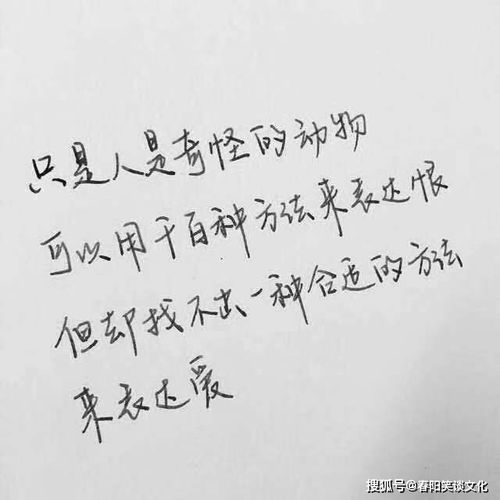 只是人是奇怪的动物
可以用千百种方法来表达恨
但却找不出一种合适的方法
来表达爱
搜狐号@春阳笑谈文化